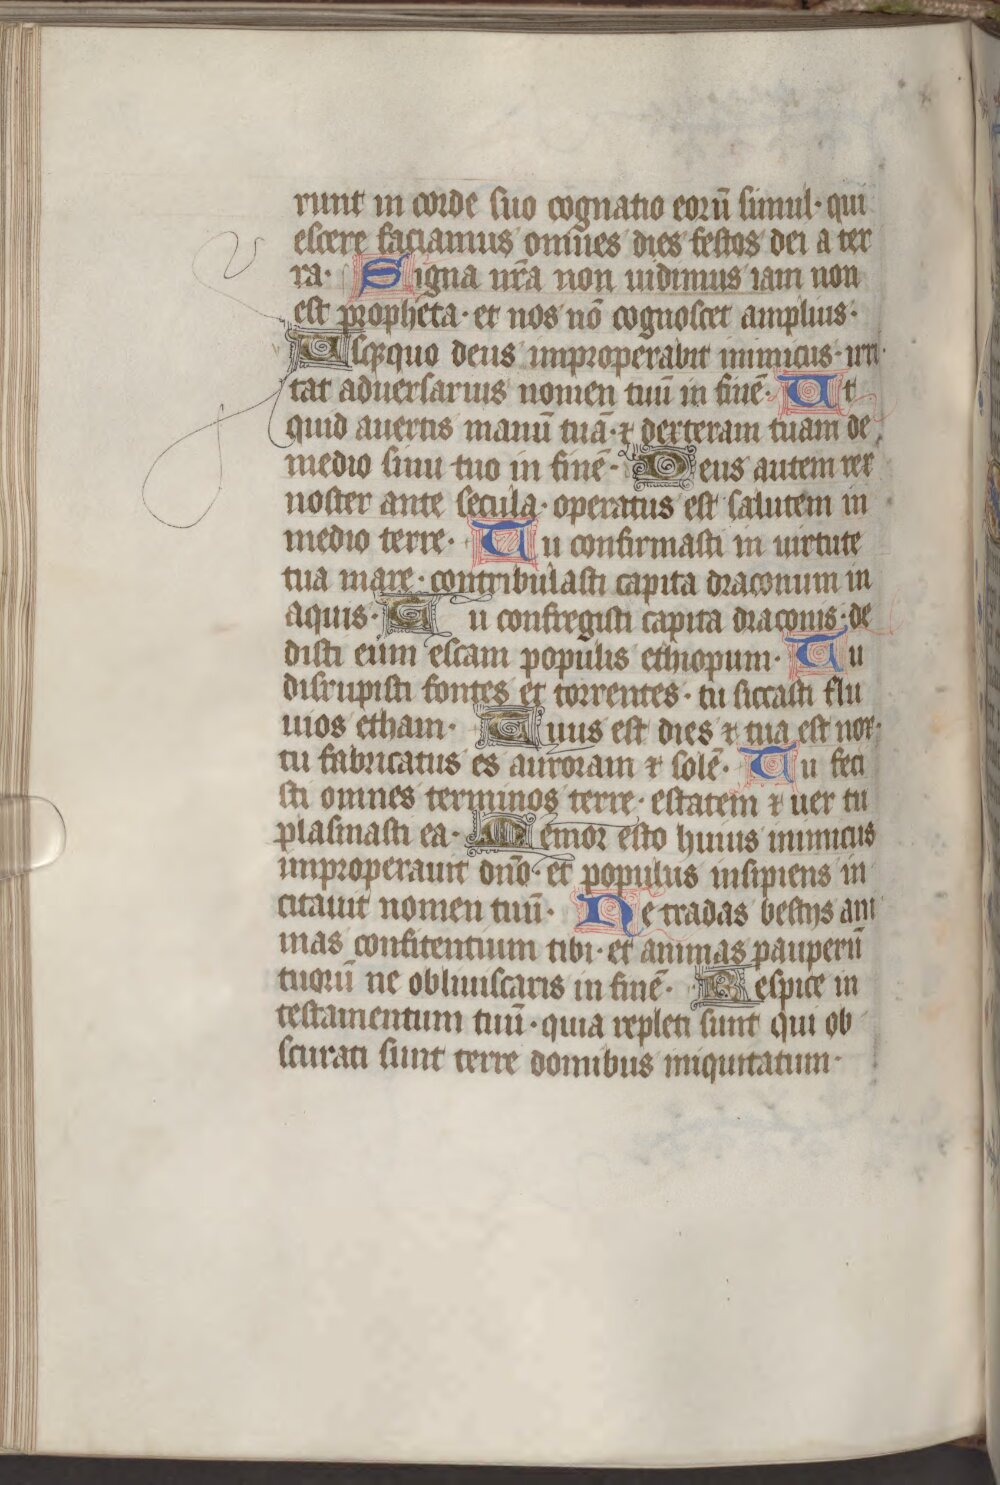 runt in corde suo cognatio eorū simul· qui
escere faciamus omnes dies festos dei a ter
ra· Signa nr̄a non uidimus iam non
est propheta· et nos nō cognoscet amplius·
Usq̨quo deus improperabit inimicus· irri
tat aduersarius nomen tuū in finē· Ut
quid auertis manū tuā· ⁊ dexteram tuam de
medio sinu tuo in finē· Deus autem rex
noster ante secula· operatus est salutem in
medio terre· Tu confirmasti in uirtute
tua mare· contribulasti capita draconum in
aquis· Tu confregisti capita draconis· de
disti eum escam populis ethiopum· Tu
disrupisti fontes et torrentes· tu siccasti flu
uios etham· Tuus est dies ⁊ tua est nox·
tu fabricatus es auroram ⁊ solē· Tu feci
sti omnes terminos terre· estatem ⁊ uer tu
plasmasti ea· Memor esto huius inimicus
improperauit dn̄o· et populus insipiens in
citauit nomen tuū· Ne tradas bestijs ani
mas confitentium tibi· et animas pauperū
tuorū ne obliuiscaris in finē· Respice in
testamentum tuū· quia repleti sunt qui ob
scurati sunt terre domibus iniquitatum·